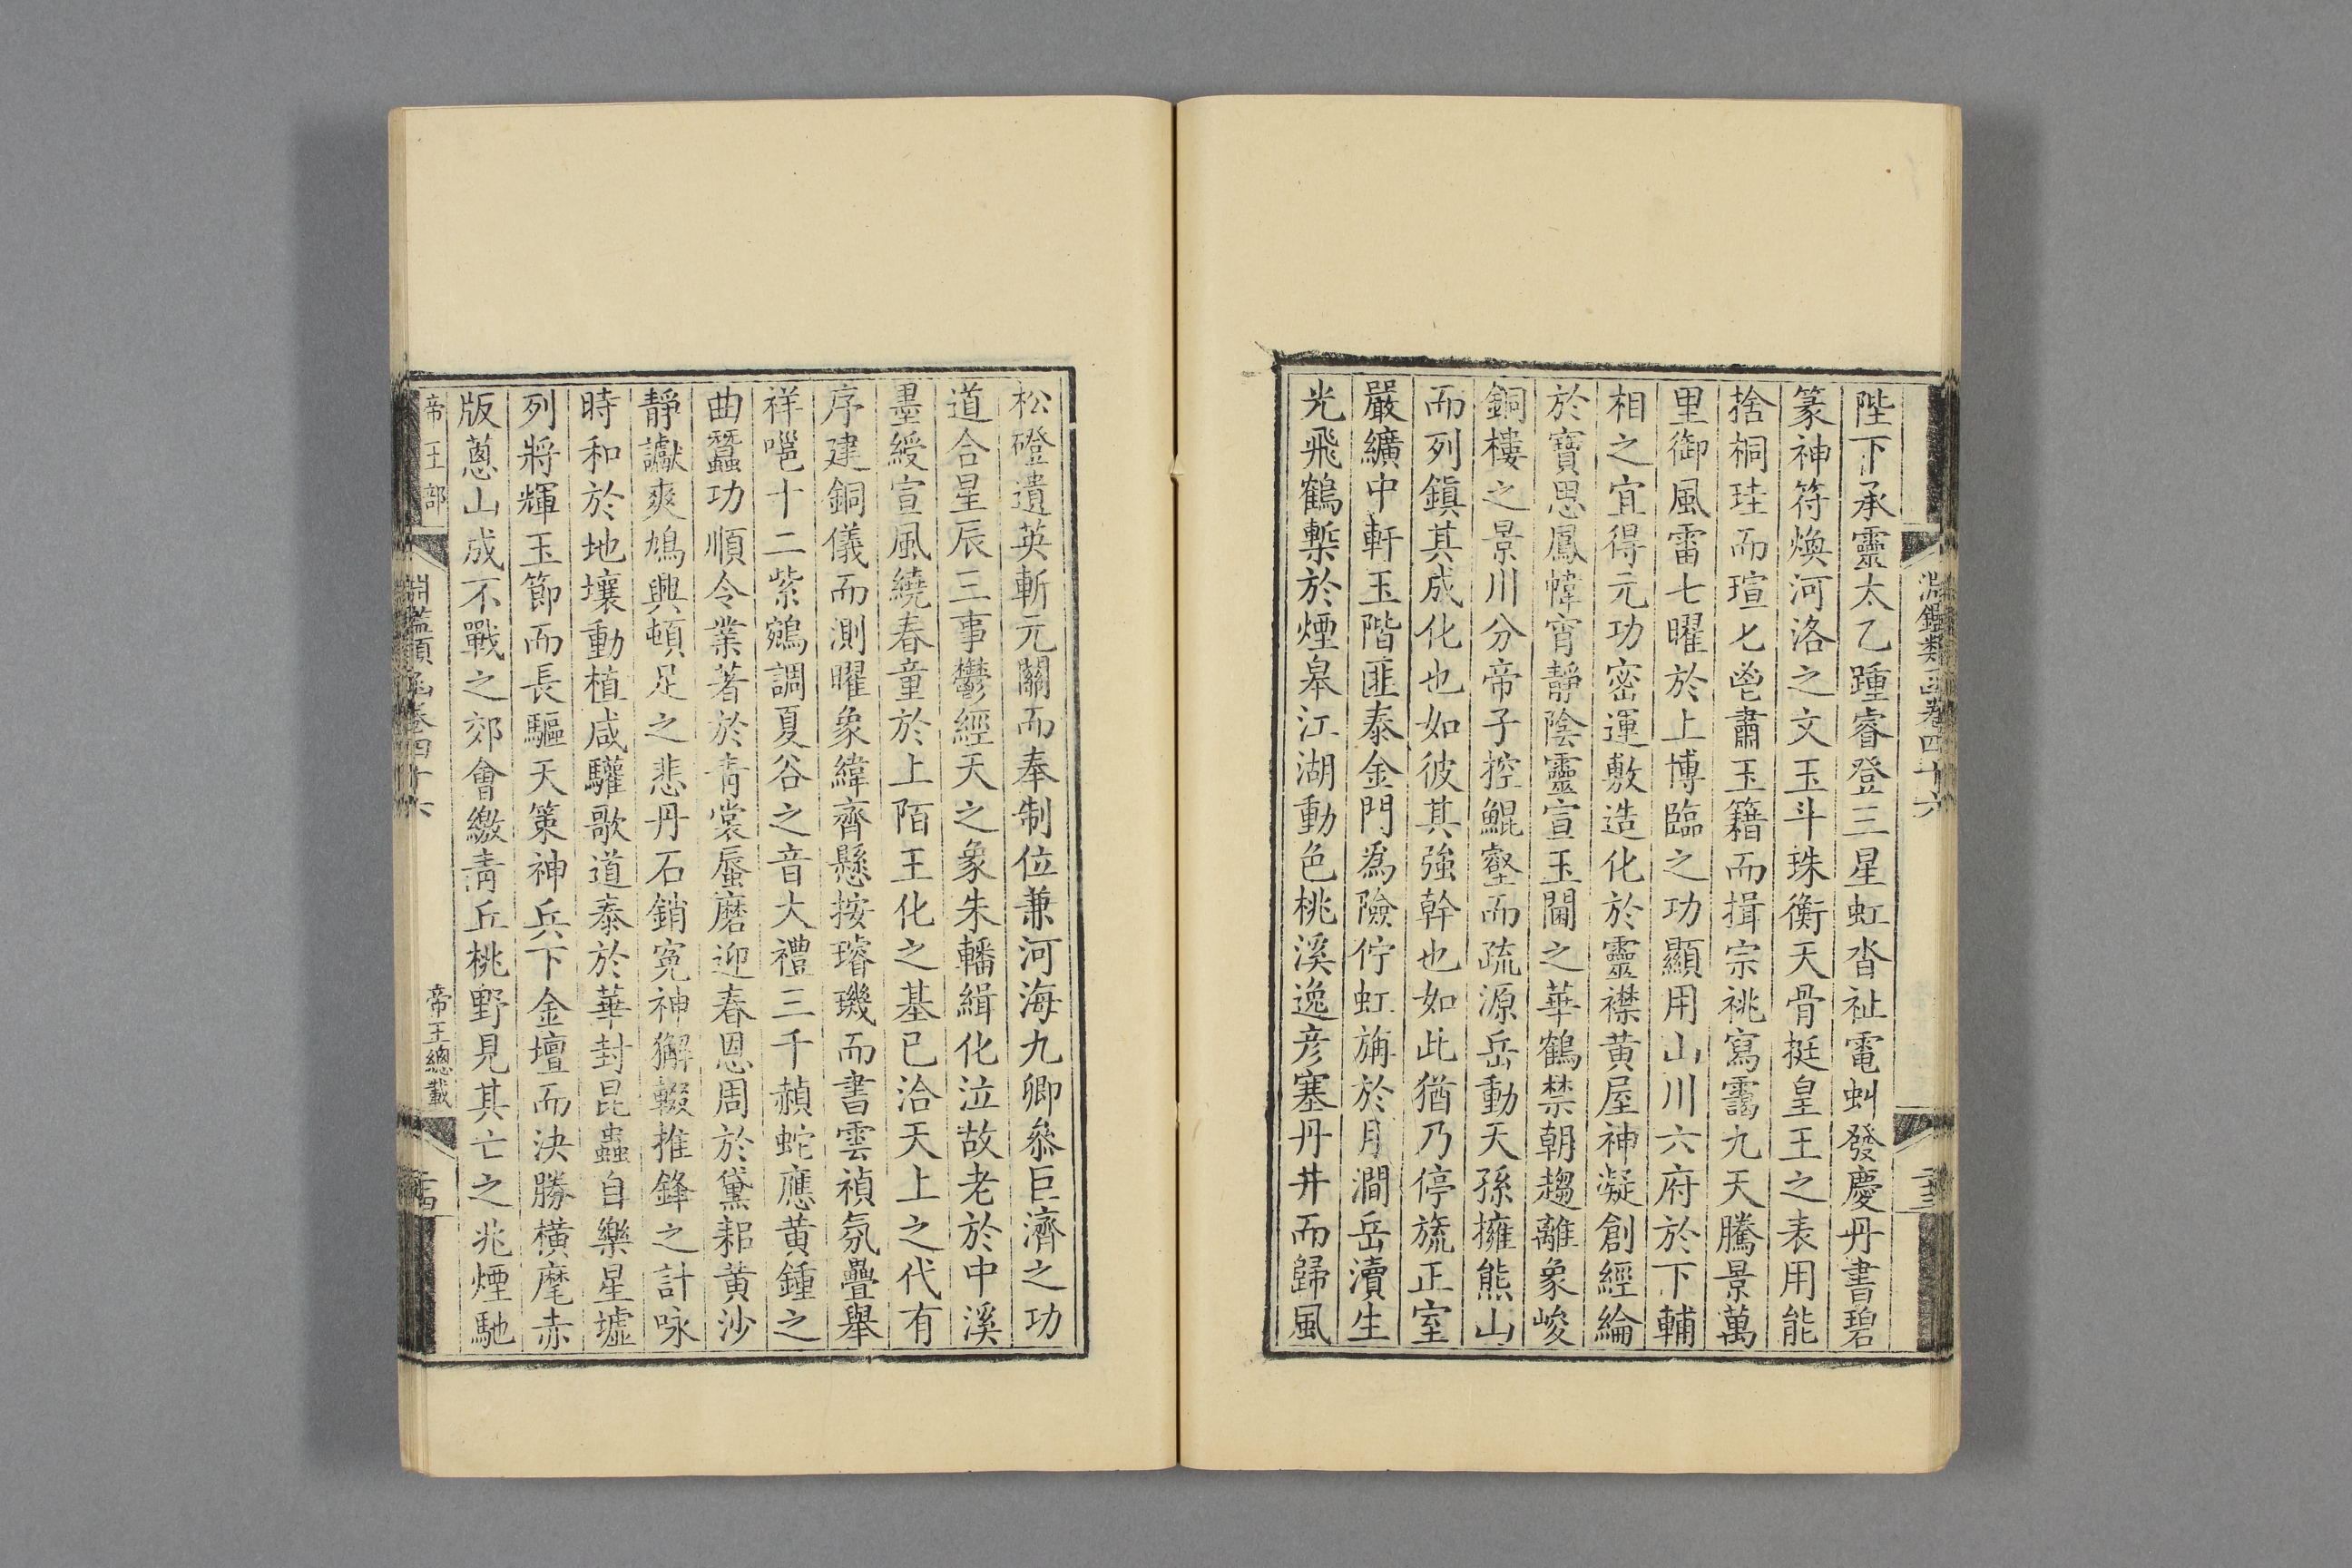 淵鑑類函卷四十六
二十三
陛下承靈太乙踵睿登三星虹沓祉電虯發慶丹書碧
篆神符煥河洛之文玉斗珠衡天骨挺皇王之表用能
捨桐珪而瑄匕鬯肅玉籍而揖宗祧寫靄九天騰景萬
里御風雷七曜於上博臨之功顯用山川六府於下輔
相之宜得元功密運敷造化於靈襟黃屋神凝創經綸
於寶思鳳幃宵靜陰靈宣玉閫之華鶴禁朝趨離象峻
銅樓之景川分帝子控鯤壑而疏源岳動天孫擁熊山
而列鎮其成化也如彼其強幹也如此猶乃停旒正室
嚴纊中軒玉階匪泰金門為險佇虹旃於月澗岳瀆生
光飛鶴槧於煙皋江湖動色桃溪逸彥塞丹井而歸風
松磴遺英斬元關而奉制位兼河海九卿叅巨濟之功
道合星辰三事鬱經天之象朱轓緝化泣故老於中溪
墨綬宣風繞春童於上陌王化之基已洽天上之代有
序建銅儀而測曜象緯齊懸按璿璣而書雲禎氛疊舉
祥嗈十二紫鵷調夏谷之音大禮三千赬蛇應黃鍾之
曲蠶功順令業著於青裳蜃磨迎春恩周於黛耜黃沙
靜讞爽鳩興頓足之悲丹石銷寃神獬輟推鋒之計咏
時和於地壤動植咸驩歌道泰於華封昆蟲自樂星墟
列將輝玉節而長驅天策神兵下金壇而決勝橫麾赤
版蔥山成不戰之郊會繳青丘桃野見其亡之兆煙馳
帝王部
淵鑑類函卷四十六
帝王總載
二十四